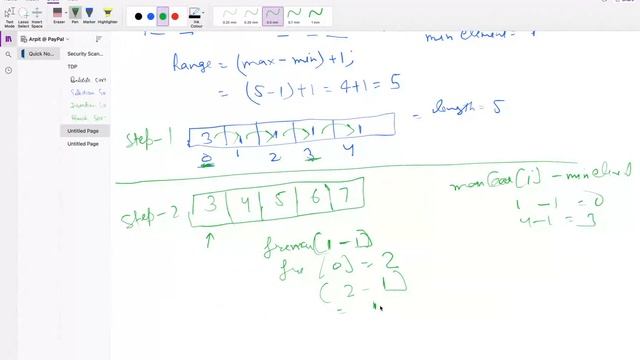 Arpit @ PayPal
Quick No...
Security Scan...
TDP
Bubble Cor
Selection So
Insertion So
Untitled Page
Untitled Page
Eraser
Pen
Marker
Highlighter
Ink Colour
0.25 mm
0.25 mm
0.5 mm
0.5 mm
1 mm
min element = 1
Range = (max - min) + 1;
= (5-1)+1 = 4+1 = 5
Step-1
3 1 1 1 1
= length = 5
0 1 2 3 4
Step-2
3 4 5 6 7
1 - 1 = 0
4-1 = 3
[1-1]
fre [0] = 2
(2-1]
=